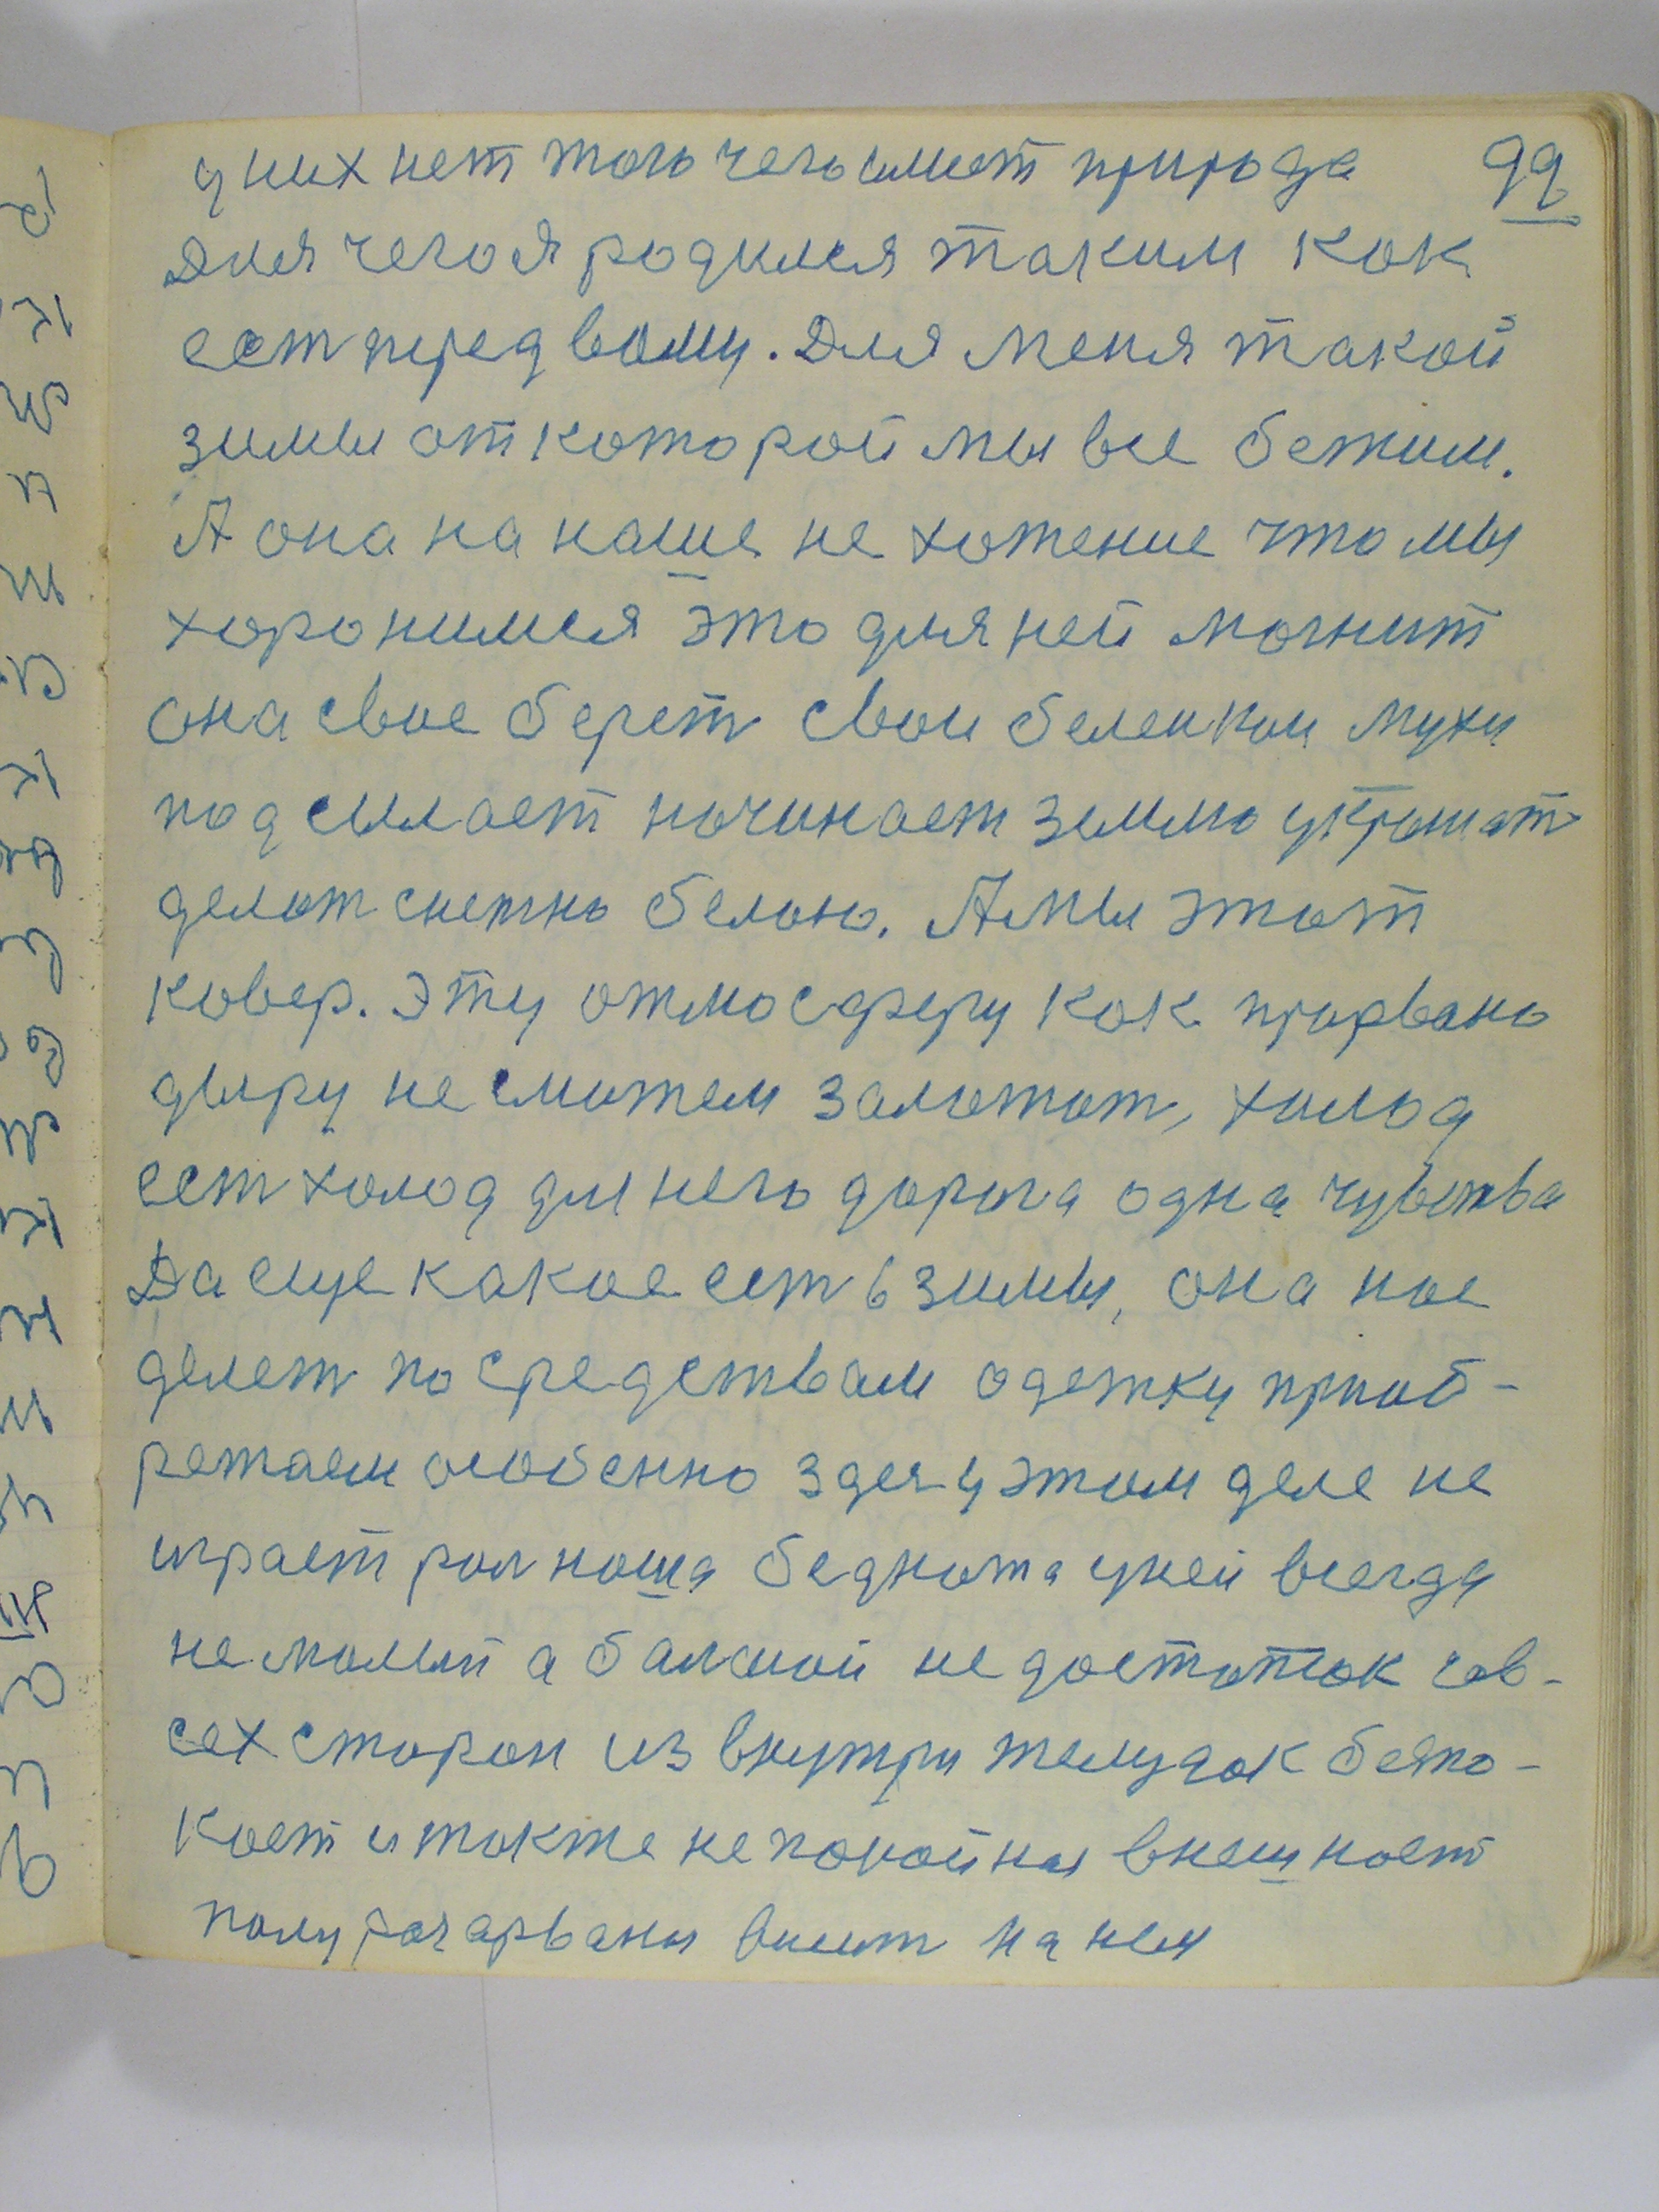 у них нет того чего имеет природа 99
Для чего я родился таким как
ест перед вами. Для меня такой
зимы от которой мы все бежим.
А она на наше не хотение что мы
хоронимся это для ней могнит
она свое берет свои беленкои мухи
подсылает начинает землю украшат
делат снежно белою. А мы этот
ковер. Эту атмосферу как прорвано
дыру не сможем залотат, холод
ест холод для него дорога одна чувства
Да еще какое ест в зимы, она нас
делет по средствам одежку приоб-
ретаем особенно здеся у этом деле не
играет рол наша беднота у ней всегда
не малый а балшой недостаток сов-
сех сторон из внутри желудок беспо-
коет и также не покойная внешност
полу разарваны висит на ней